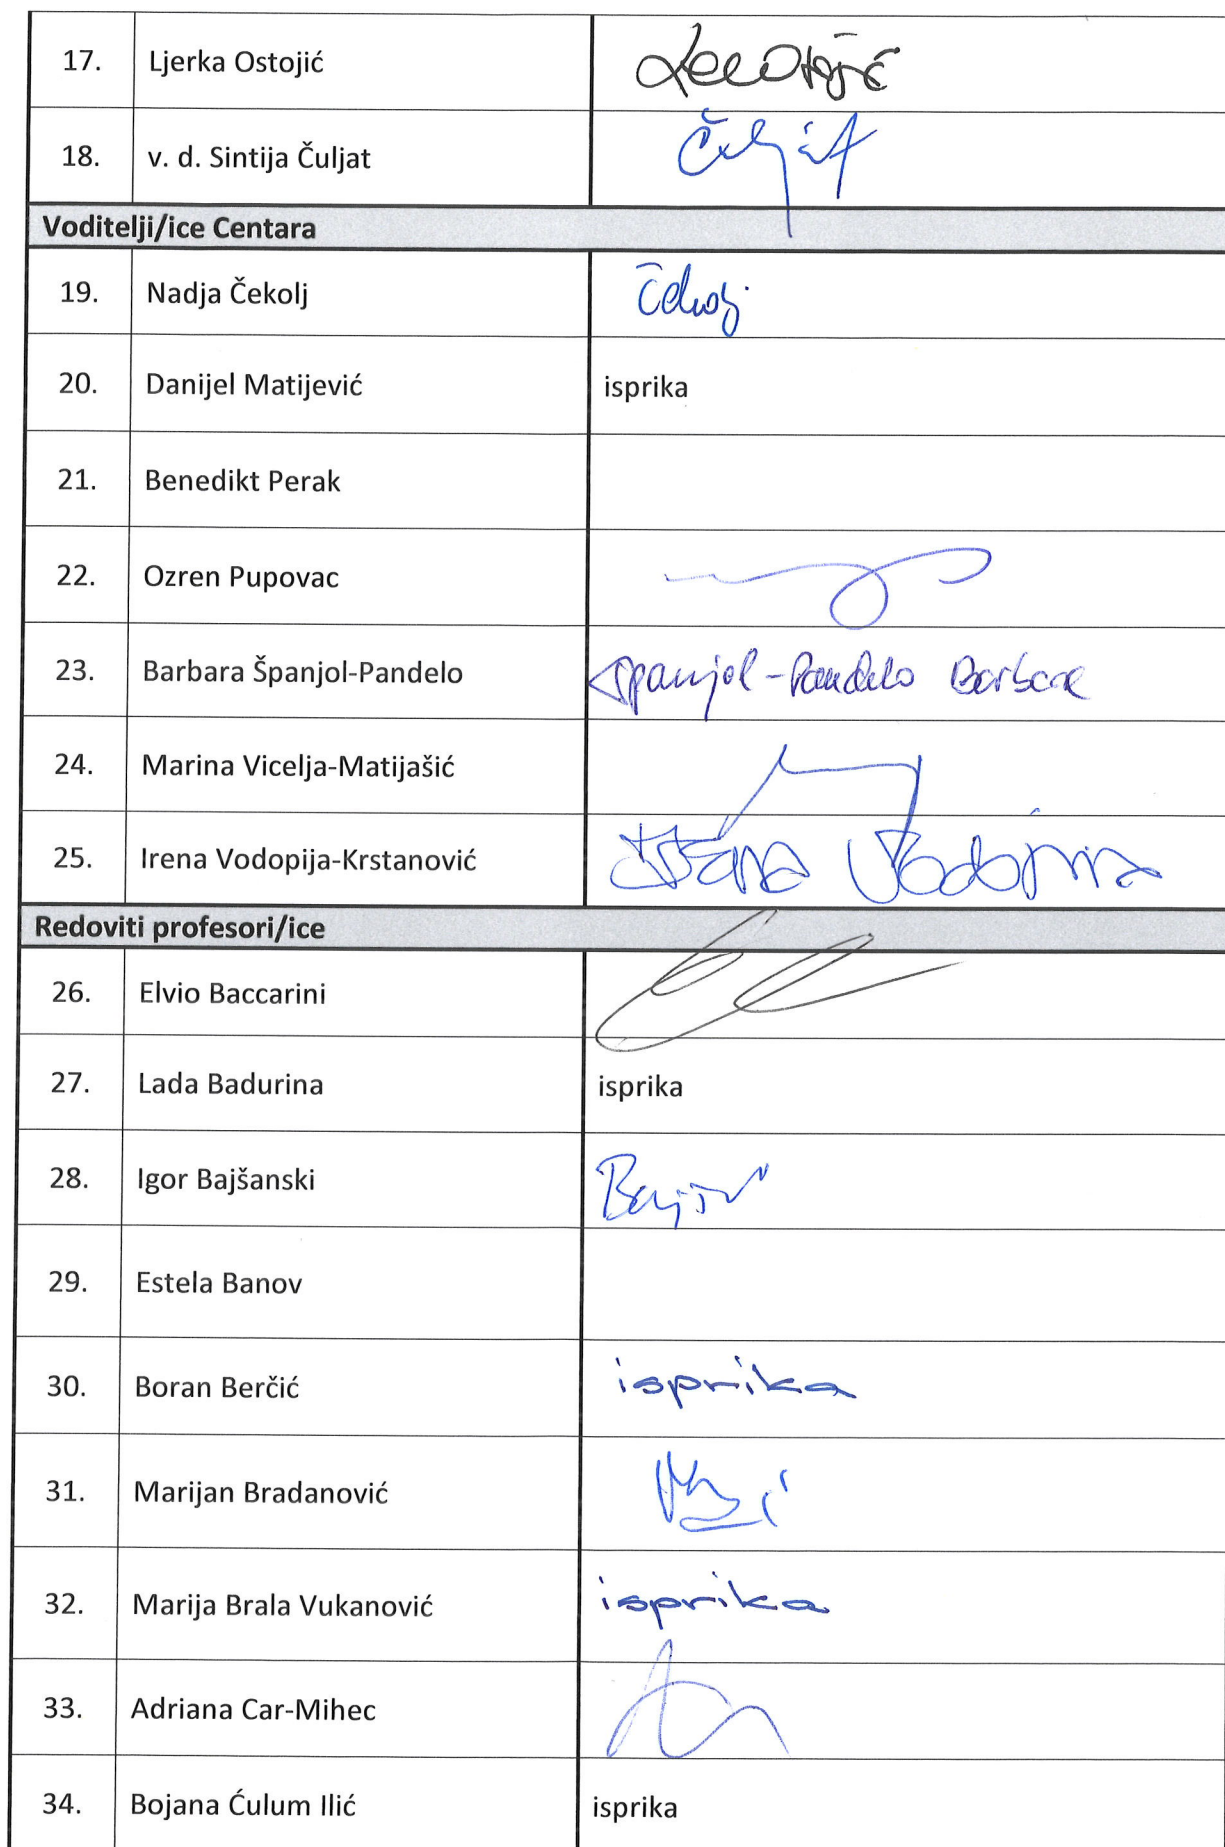 17. Ljerka Ostojić
18. v. d. Sintija Čuljat Čuljat
Voditelji/ice Centara
19. Nadja Čekolj Čekolj
20. Danijel Matijević isprika
21. Benedikt Perak
22. Ozren Pupovac
23. Barbara Španjol-Pandelo Španjol-Pandelo Barbara
24. Marina Vicelja-Matijašić
25. Irena Vodopija-Krstanović Irena Vodopija
Redoviti profesori/ice
26. Elvio Baccarini
27. Lada Badurina isprika
28. Igor Bajšanski
29. Estela Banov
30. Boran Berčić isprika
31. Marijan Bradanović
32. Marija Brala Vukanović isprika
33. Adriana Car-Mihec
34. Bojana Ćulum Ilić isprika